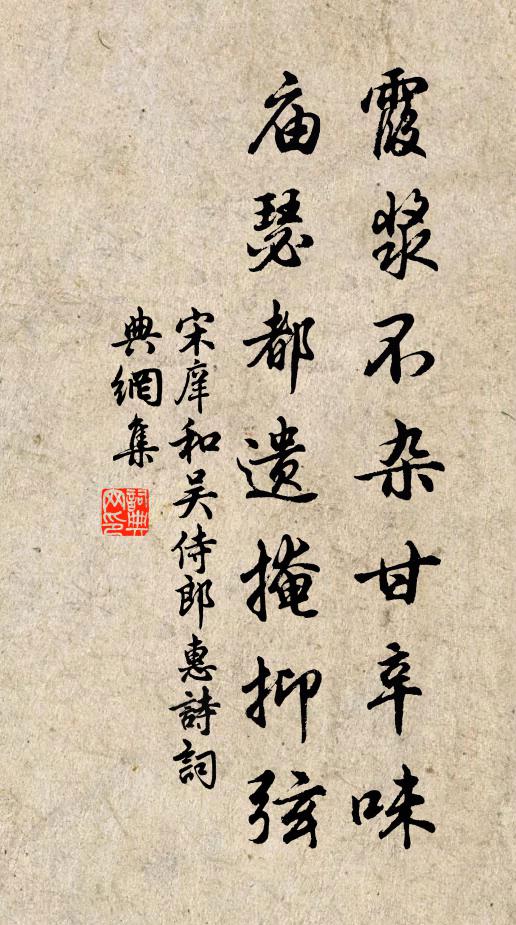 霞浆不杂甘辛味
庙瑟都遗掩抑弦
宋庠和吴侍郎惠詩詞
典網集
詞典網印